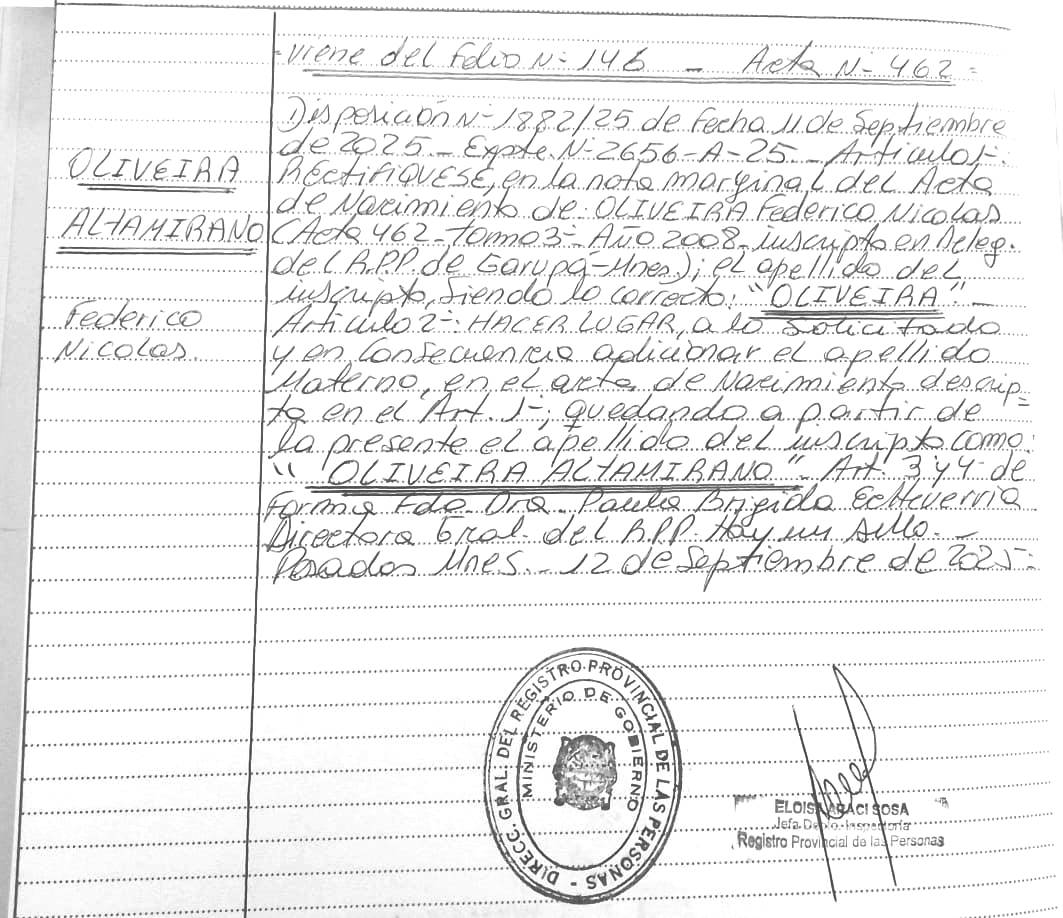 =viene del Folio N- 146 - Acta N- 462=
OLIVEIRA
ALTAMIRANO
Federico
Nicolas.
Disposición N- 1882/25 de Fecha 11 de Septiembre
de 2025.- Expte. N- 2656-A-25.- Articulo 1-:
RECTIFIQUESE, en la nota marginal del Acta
de Nacimiento de OLIVEIRA Federico Nicolas
(Acta 462-tomo 3- Año 2008-inscripta en Deleg.
del R.P.P. de Garupá-Mnes.); el apellido del
inscripto, siendo lo correcto: "OLIVEIRA".-
Articulo 2-: HACER LUGAR, a lo solicitado
y en consecuencia adicionar el apellido
Materno, en el acta de Nacimiento descrip=
ta en el Art. 1-; quedando a partir de
la presente el apellido del inscripto como:
" OLIVEIRA ALTAMIRANO". Art. 3 y 4- de
Forma Fdo. Dra. Paula Brigida Echeverria
Directora Gral. del R.P.P. Hay un sello.-
Posadas Mnes.- 12 de Septiembre de 2025-
DIRECC. GRAL. DEL REGISTRO PROVINCIAL DE LAS PERSONAS -
MINISTERIO DE GOBIERNO
ELOISA ARACI SOSA
Jefa Depto. Inspectoria
Registro Provincial de las Personas